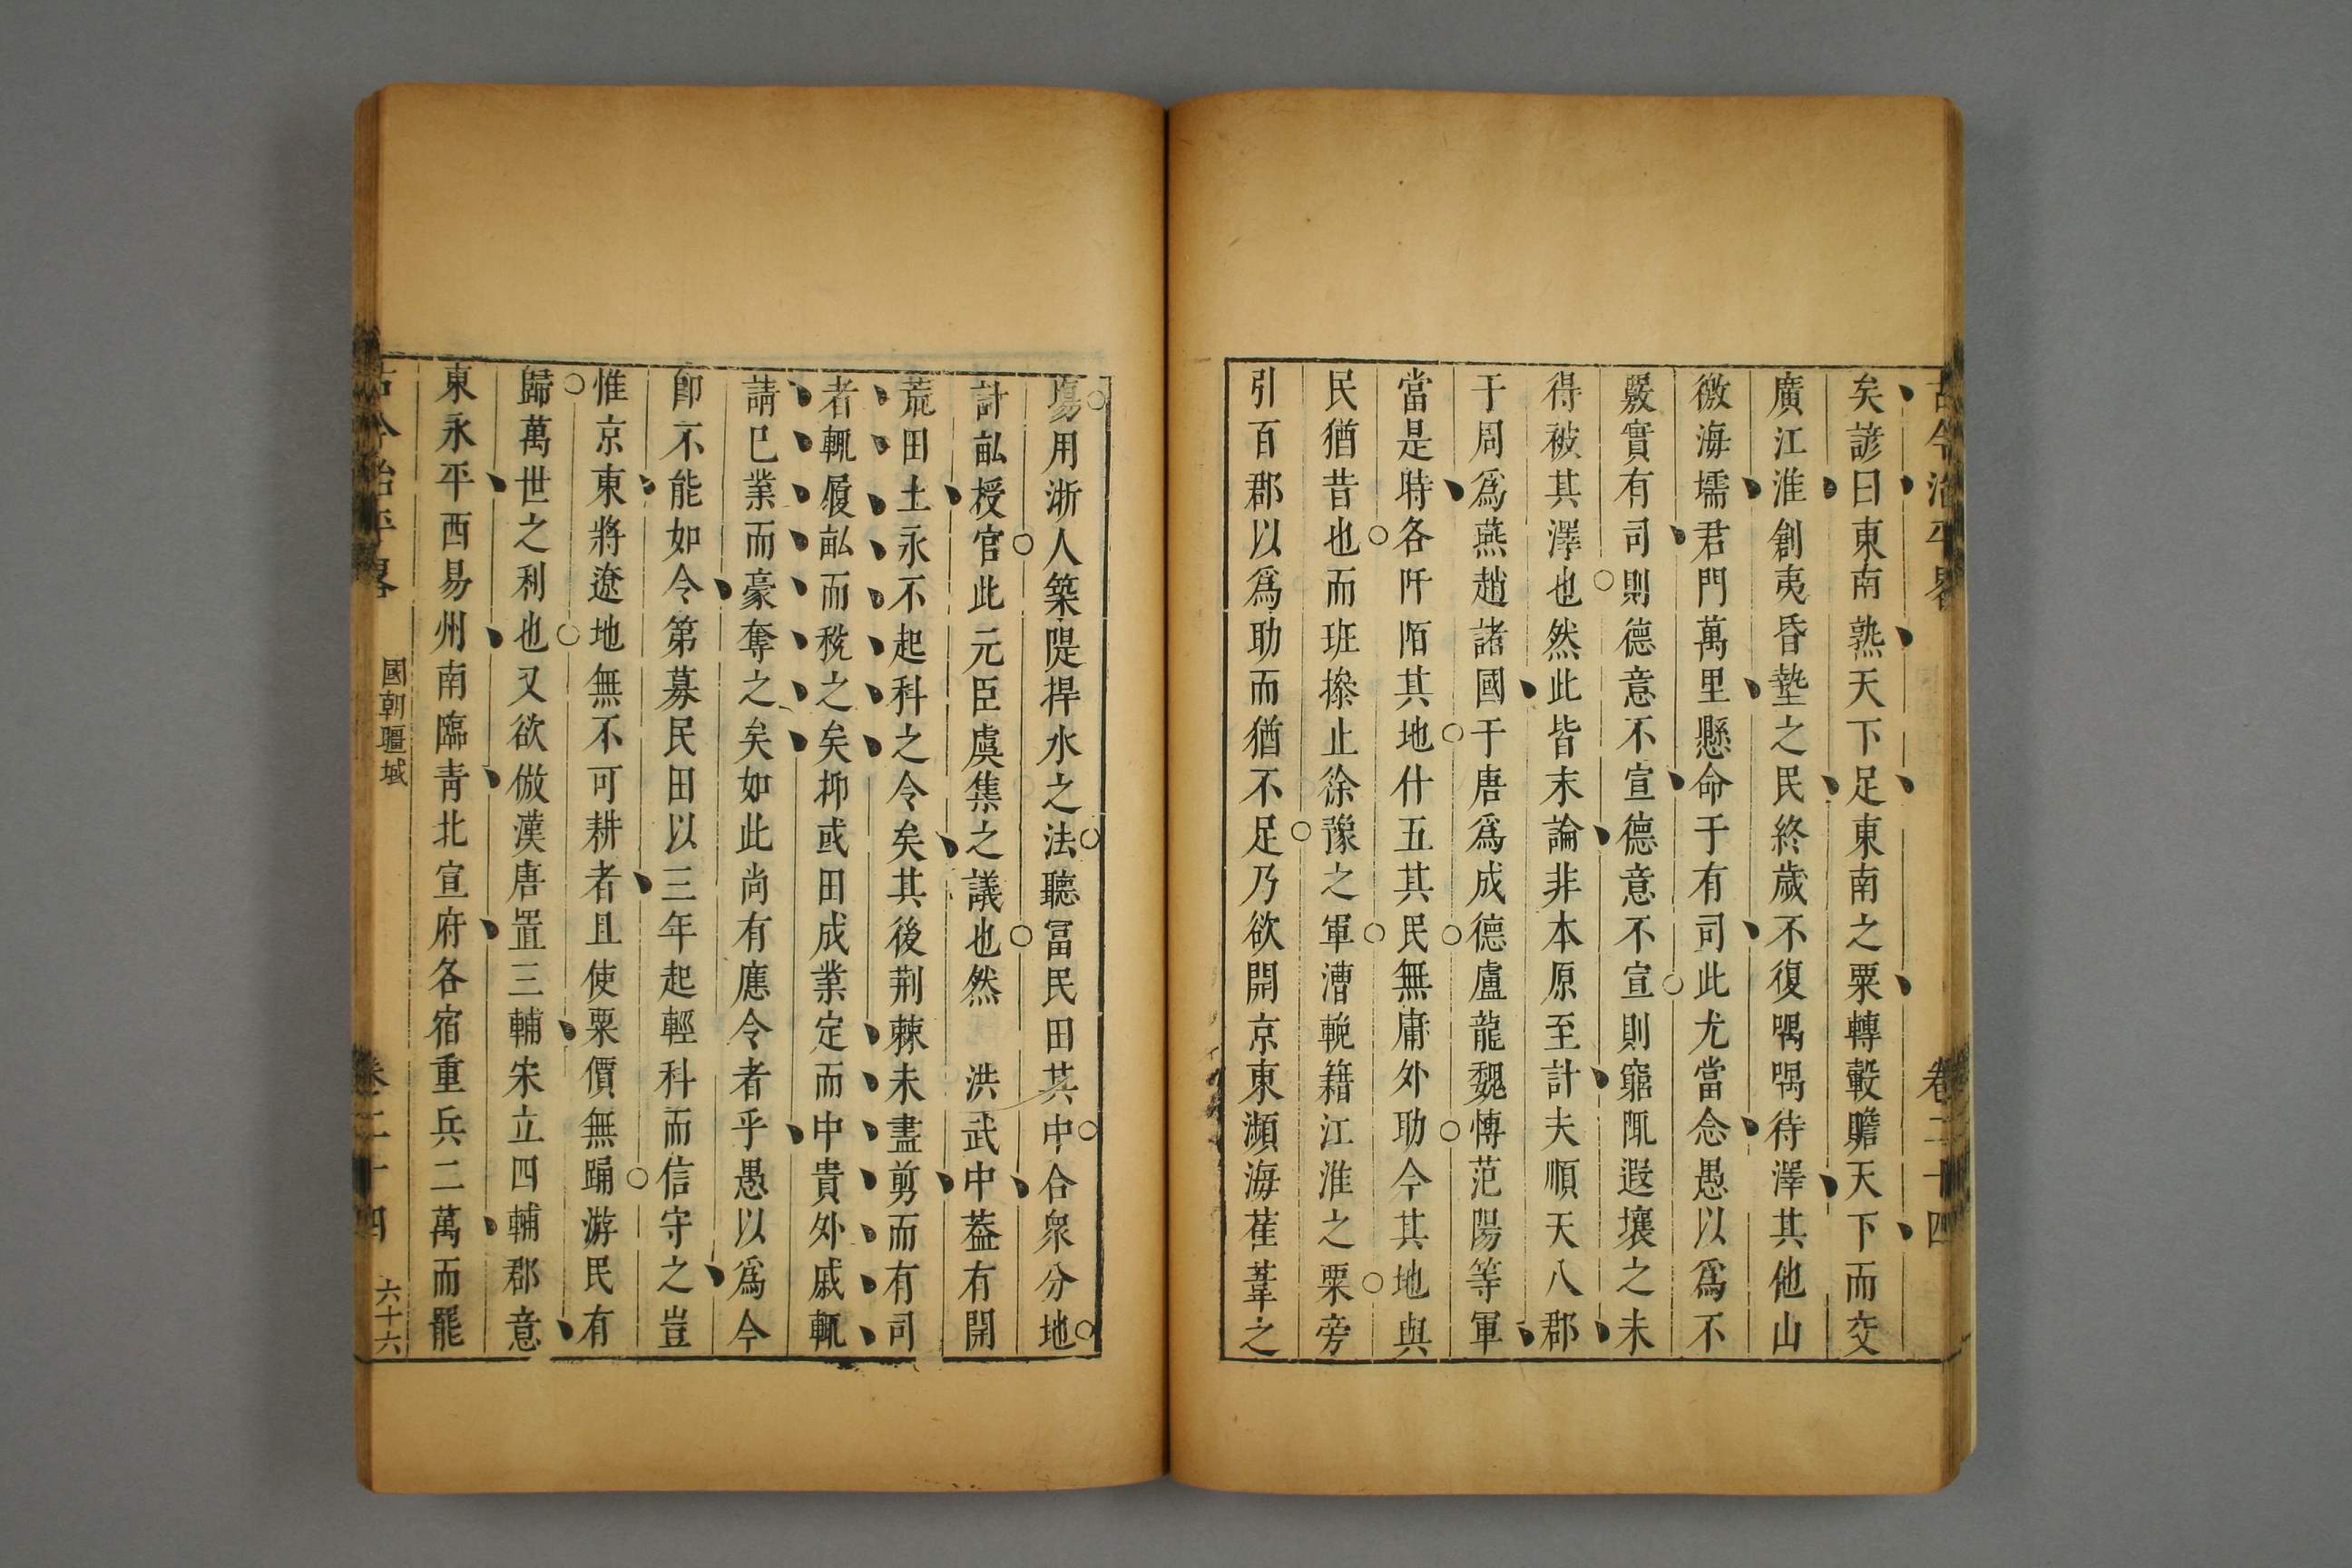 古今治平畧 卷二十四
矣諺曰東南熟天下足東南之粟轉轂贍天下而交
廣江淮創夷昏墊之民終歲不復喁喁待澤其他山
徼海壖君門萬里懸命于有司此尤當念愚以爲不
覈實有司則德意不宣德意不宣則窮陬遐壤之未
得被其澤也然此皆末論非本原至計夫順天八郡
于周爲燕趙諸國于唐爲成德盧龍魏愽范陽等軍
當是時各阡陌其地什五其民無庸外助今其地與
民猶昔也而班摻止徐豫之軍漕輓籍江淮之粟旁
引百郡以爲助而猶不足乃欲開京東瀕海萑葦之
塲用浙人築隄捍水之法聽冨民田其中合衆分地
計畝授官此元臣虞集之議也然 洪武中葢有開
荒田土永不起科之令矣其後荆棘未盡剪而有司
者輒履畝而稅之矣抑或田成業定而中貴外戚輒
請巳業而豪奪之矣如此尚有應令者乎愚以爲今
卽不能如令第募民田以三年起輕科而信守之豈
惟京東將遼地無不可耕者且使粟價無踊游民有
歸萬世之利也又欲倣漢唐置三輔宋立四輔郡意
東永平西易州南臨靑北宣府各宿重兵二萬而罷
古今治平畧 國朝疆域 卷二十四 六十六